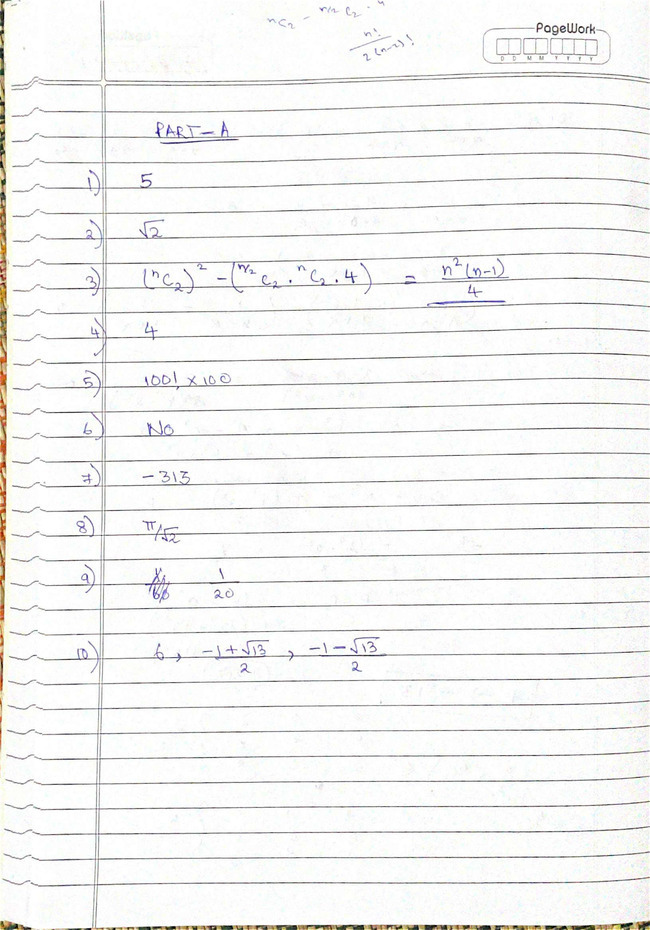 ⁿC₂ - ⁿ/²C₂ · 4
n!
2(n-2)!
PageWork
D D M M Y Y Y Y
PART-A
1) 5
2) √2
3) (ⁿC₂)² - (ⁿ/²C₂ · ⁿC₂ · 4) = n²(n-1)/4
4) 4
5) 100! × 100
6) No
7) -313
8) π/√2
9) 1/20
10) 6, (-1+√13)/2, (-1-√13)/2